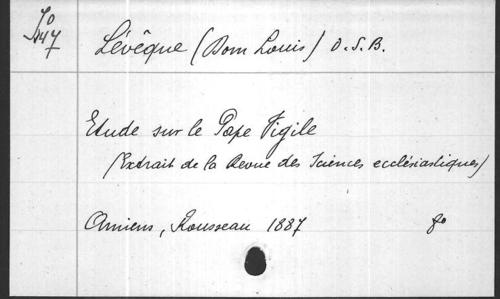 Lévêque (Dom Louis) O.S.B.
Etude sur le Pape Vigile
(Extrait de la Revue des Sciences ecclésiastiques)
Amiens, Rousseau 1887 8o